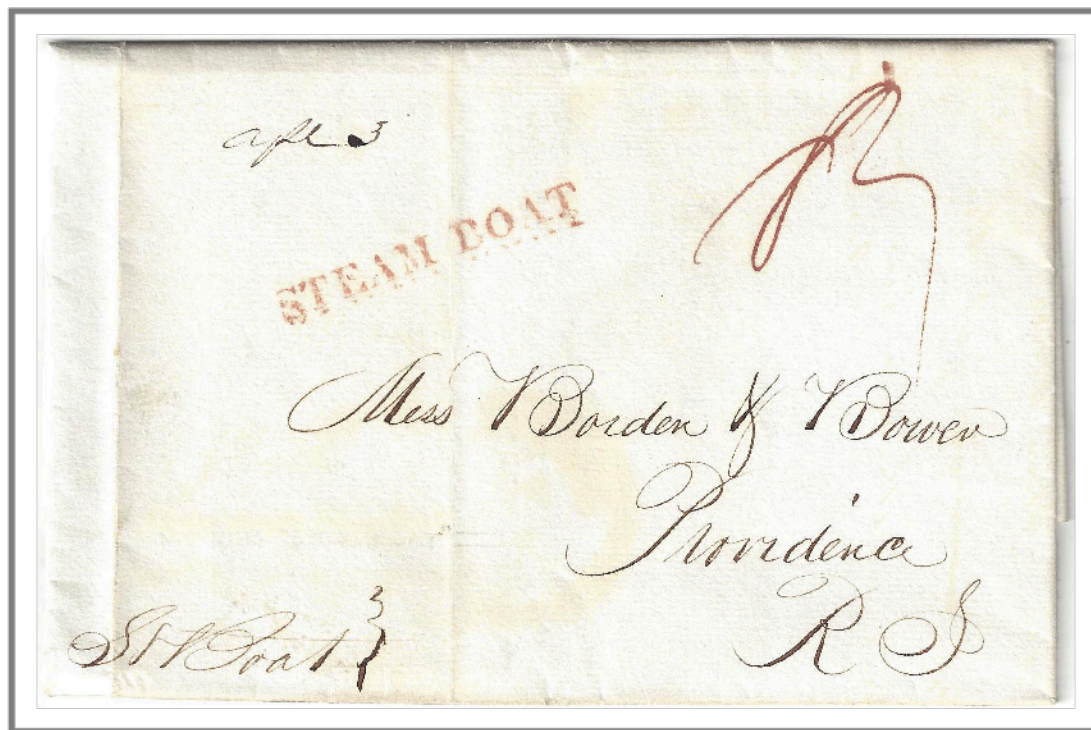 apl 3
STEAM BOAT
Mess Borden & Bowen
Providence
R I
St Boat